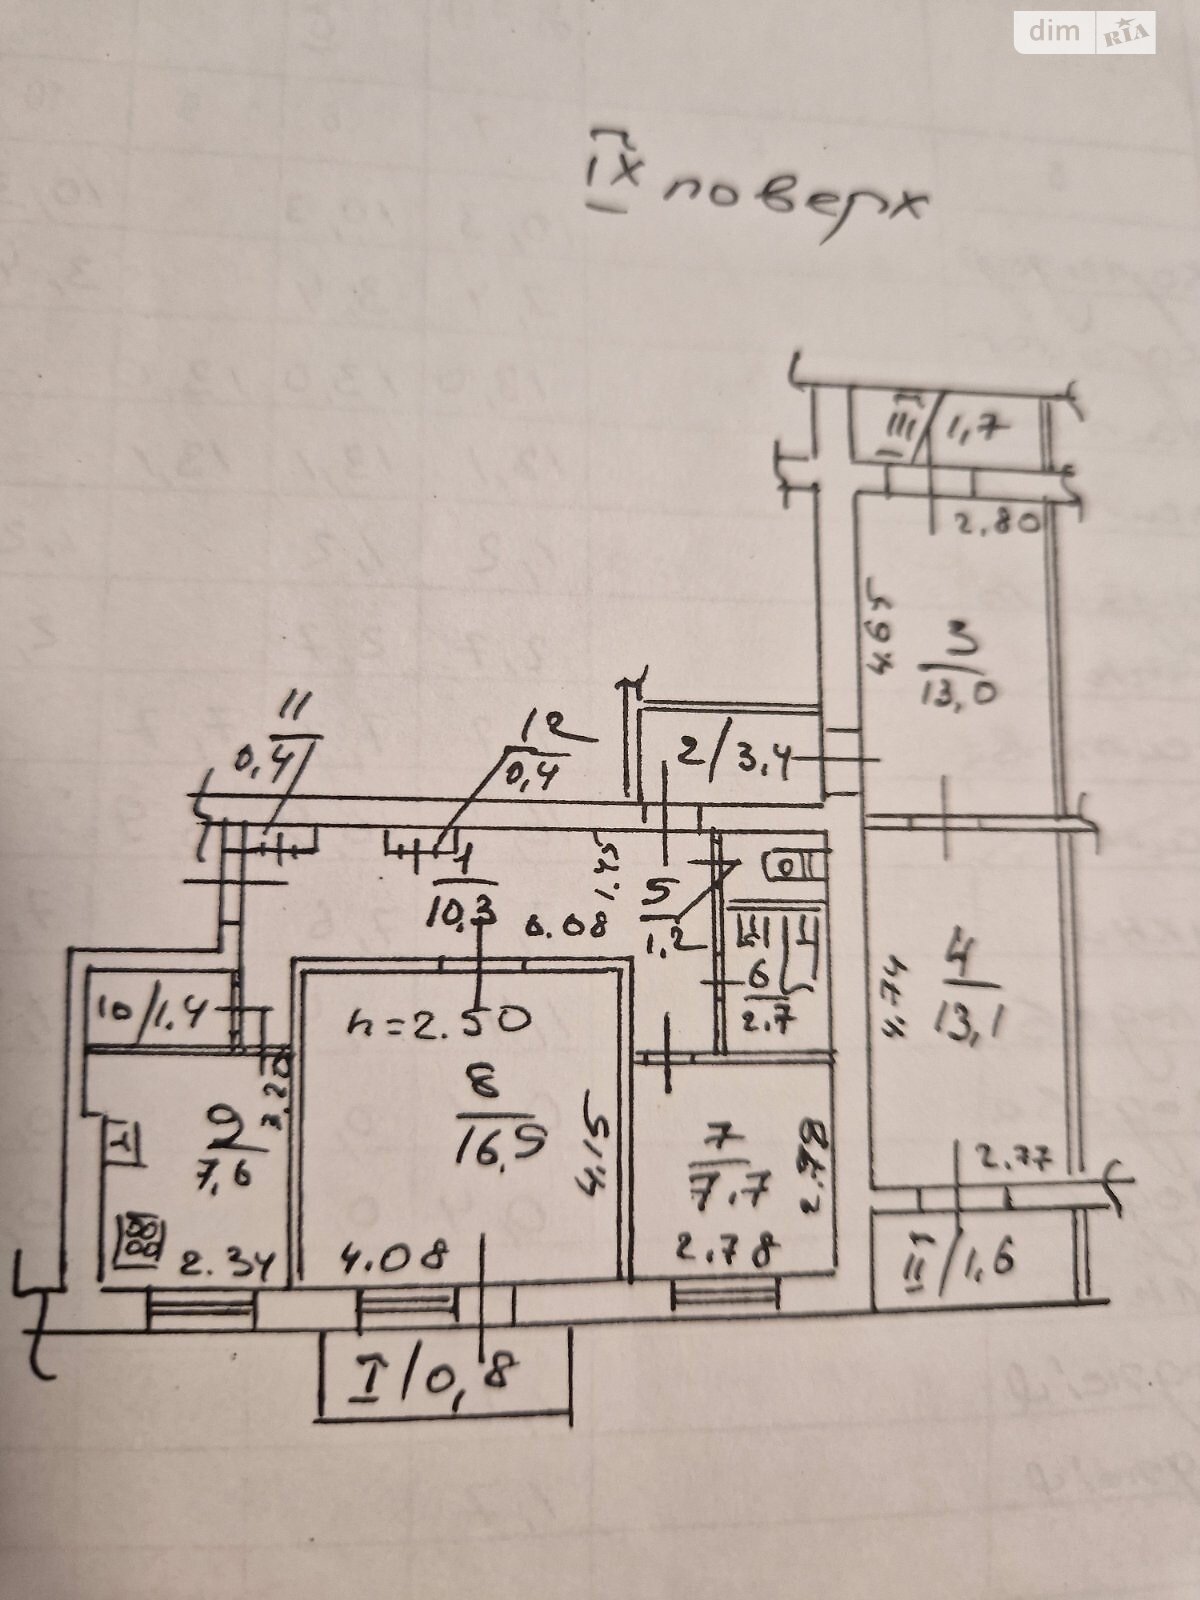 dim RIA
IX поверх
III/1,7
2.80
4.65
3
13,0
11
0,4
12
0,4
2/3,4
1
10,3
1.45
6.08
5
1.2
6
2.7
4
13,1
4.74
2.77
10/1.4
h=2.50
3.20
9
7,6
2.34
8
16,9
4.15
4.08
7
7.7
2.78
2.78
II/1,6
I/0,8